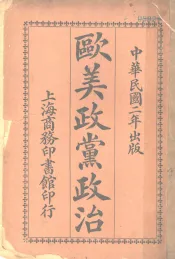 中華民國二年出版
歐美政黨政治
上海商務印書館印行